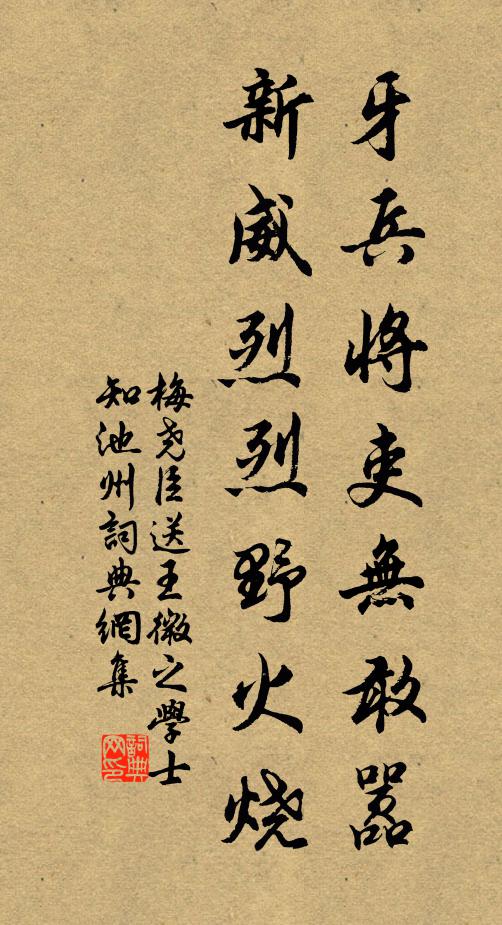 牙兵將吏無敢囂
新威烈烈野火烧
梅尧臣送王徽之學士
知池州詞典網集
詞典网印